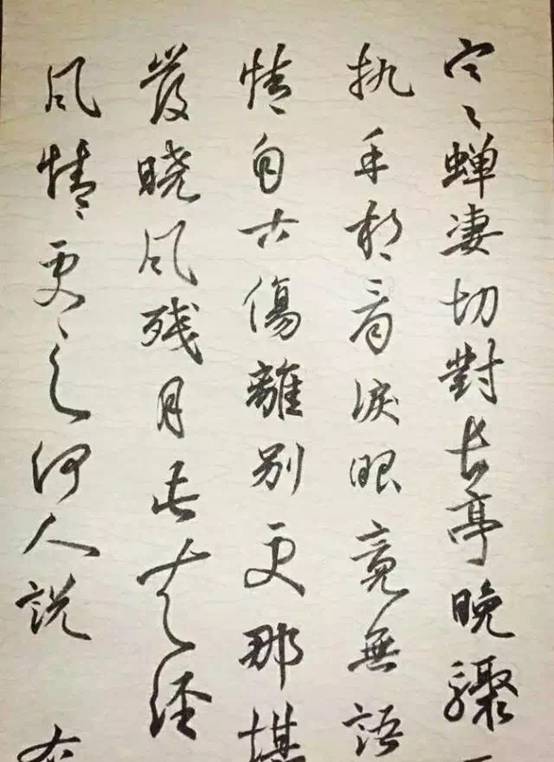 寒蝉凄切對长亭晚驟
执手相看淚眼竟無語
情自古傷離别更那堪
岸晓风残月此去经
风情更与何人説